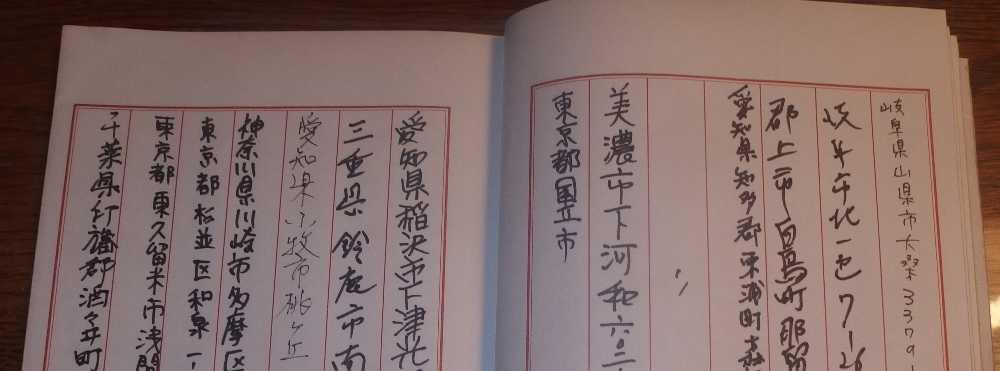 岐阜県山県市大桑3379-
岐阜市北一色7-26
郡上市白鳥町那留
愛知県知多郡東浦町
〃
美濃市下河和六〇二
東京都国立市
愛知県稲沢市下津光
三重県鈴鹿市南
愛知県小牧市桃ヶ丘
神奈川県川崎市多摩区
東京都杉並区和泉一-
東京都東久留米市浅間
千葉県印旛郡酒々井町